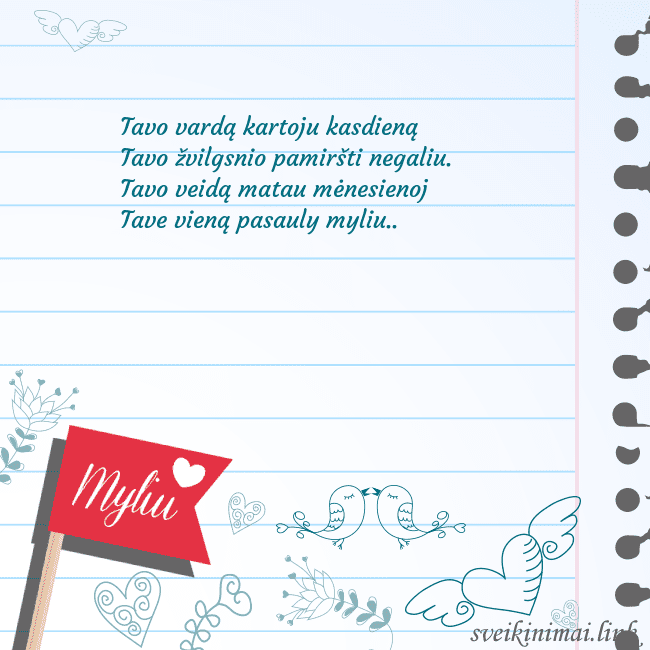 Tavo vardą kartoju kasdieną
Tavo žvilgsnio pamiršti negaliu.
Tavo veidą matau mėnesienoj
Tave vieną pasauly myliu..
Myliu
sveikinimai.link